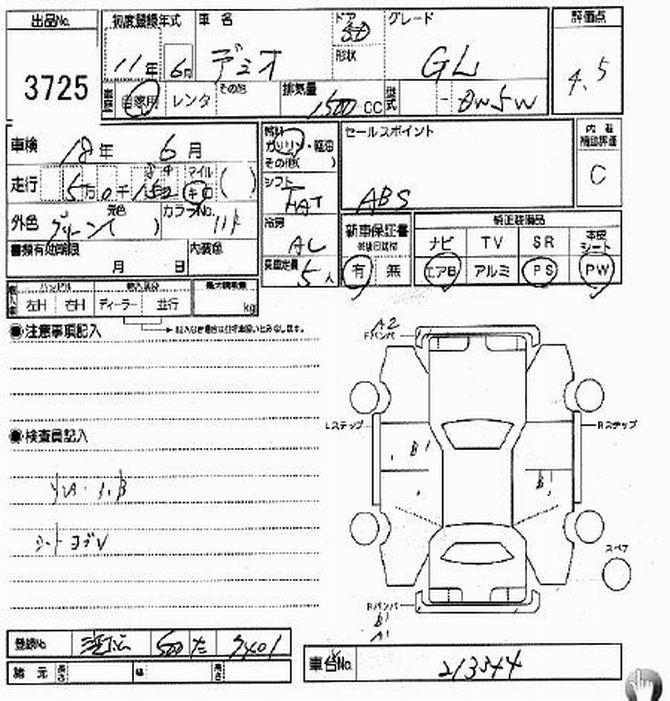 出品No. 3725
初度登録年式 11年 6月
車名 デミオ
ドア 5D
形状
グレード GL
評価点 4.5
自家用 レンタ その他
排気量 1500 CC
型式 - DW5W
車検 18年 6月
走行 5万0千152 マイル キロ ( )
外色 グリーン 元色 ( ) カラーNo.
書類有効期限 月 日
内装色
燃料 ガソリン・軽油 その他( )
シフト FAT
冷房 AC
乗車定員 5人
セールスポイント
ABS
内装補助評価 C
新車保証書 有 無
純正装備品
ナビ TV SR 本皮シート
エアB アルミ PS PW
ハンドル 左H 右H
輸入区分 ディーラー 並行
最大積載量 kg
●注意事項記入
●検査員記入
シートヨゴレ
A2
Fバンパ
Lステップ
Rステップ
B1
B1
スペア
Rバンパ
B1
A1
登録No. 500 た 7401
諸元 長さ 幅 高さ
車台No. 213544